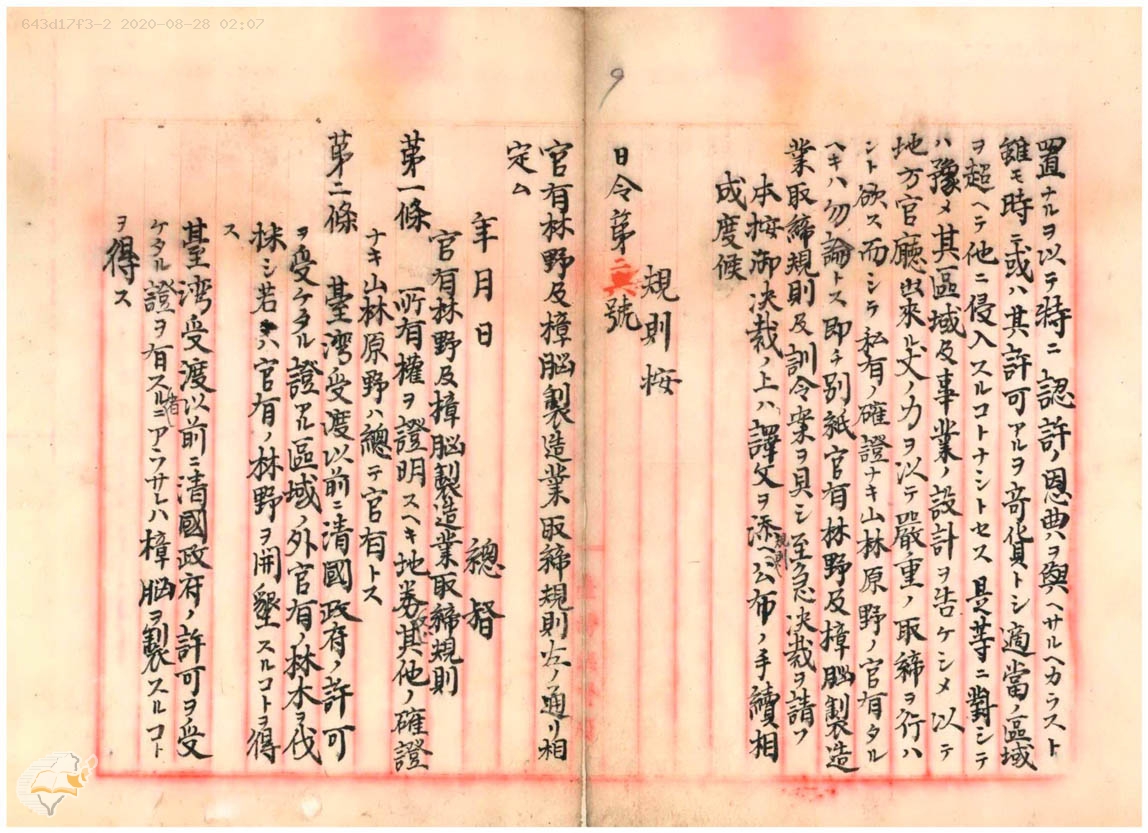 643d17f3-2 2020-08-28 02:07
9
置ナルヲ以テ特ニ認許ノ恩典ハヲ與ヘサルヘカラスト
雖モ時ニ或ハ其許可アルヲ奇貨トシ適當ノ區域
ヲ超ヘテ他ニ侵入スルコトナシトセス是等ニ對シテ
ハ豫メ其區域及事業ノ設計ヲ告ケシメ以テ
地方官廳出來ル丈ノ力ヲ以テ嚴重ノ取締ヲ行ハ
ント欲ス而シテ私有ノ確證ナキ山林原野ノ官有タル
ヘキハ勿論トス即チ別紙官有林野及樟腦製造
業取締規則及訓令案ヲ具シ至急決裁ヲ請フ
本按御決裁ノ上ハ譯文ヲ添ヘ規則公布ノ手續相
成度候
規則按
日令第二十六號
官有林野及樟腦製造業取締規則左ノ通リ相
定ム
年月日 總督
官有林野及樟腦製造業取締規則
第一條 所有權ヲ證明スヘキ地券其他ノ確證
ナキ山林原野ハ總テ官有トス
第二條 臺灣受渡以前ニ清國政府ノ許可
ヲ受ケタル證アル區域ノ外官有ノ林木ヲ伐
採シ若クハ官有ノ林野ヲ開墾スルコトヲ得
ス
臺灣受渡以前ニ清國政府ノ許可ヲ受
ケタル證ヲ有スル者ニアラサレハ樟腦ヲ製スルコト
ヲ得ス